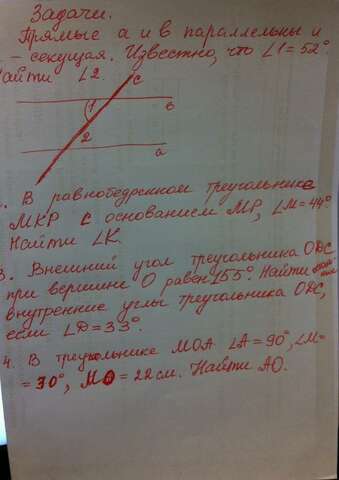 Задачи.
Прямые а и в параллельны и
– секущая. Известно, что ∠1=52°.
Найти ∠2.
с
1
в
2
а
. В равнобедренном треугольнике
МКР с основанием МР, ∠М=44°
Найти ∠К.
3. Внешний угол треугольника ОDС
при вершине О равен 155°. Найти
внутренние углы треугольника ОDС,
если ∠D=33°.
4. В треугольнике МОА ∠А=90°, ∠М=
=30°, МО=22см. Найти АО.